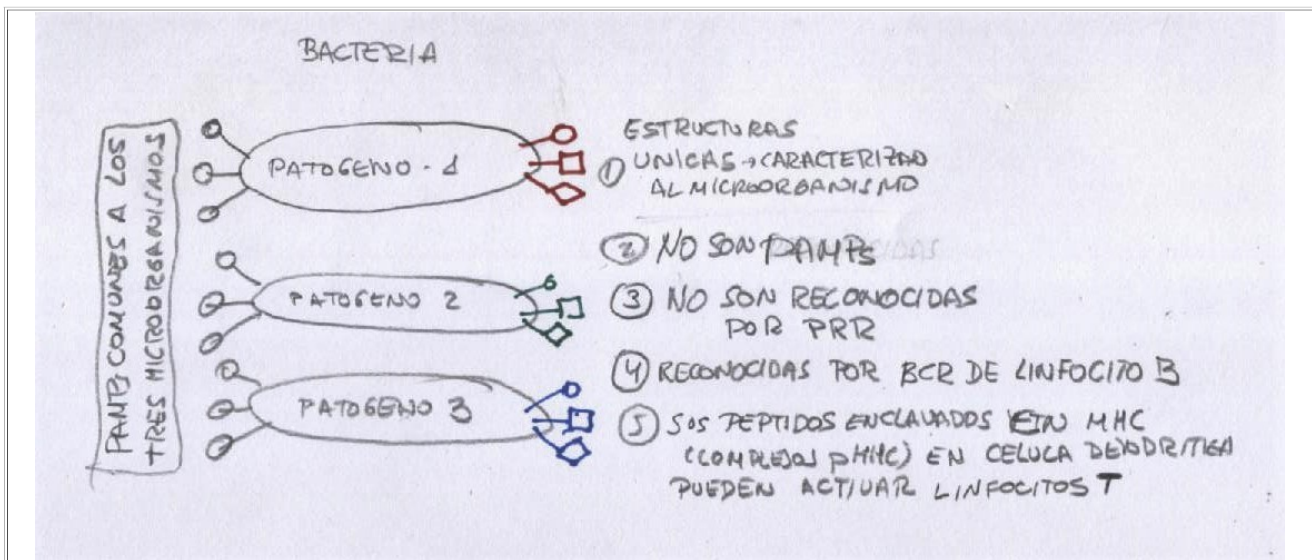 BACTERIA
PAMPS COMUNES A LOS
TRES MICROORGANISMOS
PATOGENO - 1
PATOGENO 2
PATOGENO 3
ESTRUCTURAS
① UNICAS → CARACTERIZAN
AL MICROORGANISMO
② NO SON PAMPs
③ NO SON RECONOCIDAS
POR PRR
④ RECONOCIDAS POR BCR DE LINFOCITO B
⑤ SUS PEPTIDOS ENCLAVADOS EN MHC
(COMPLEJOS pMHC) EN CELULA DENDRITICA
PUEDEN ACTIVAR LINFOCITOS T